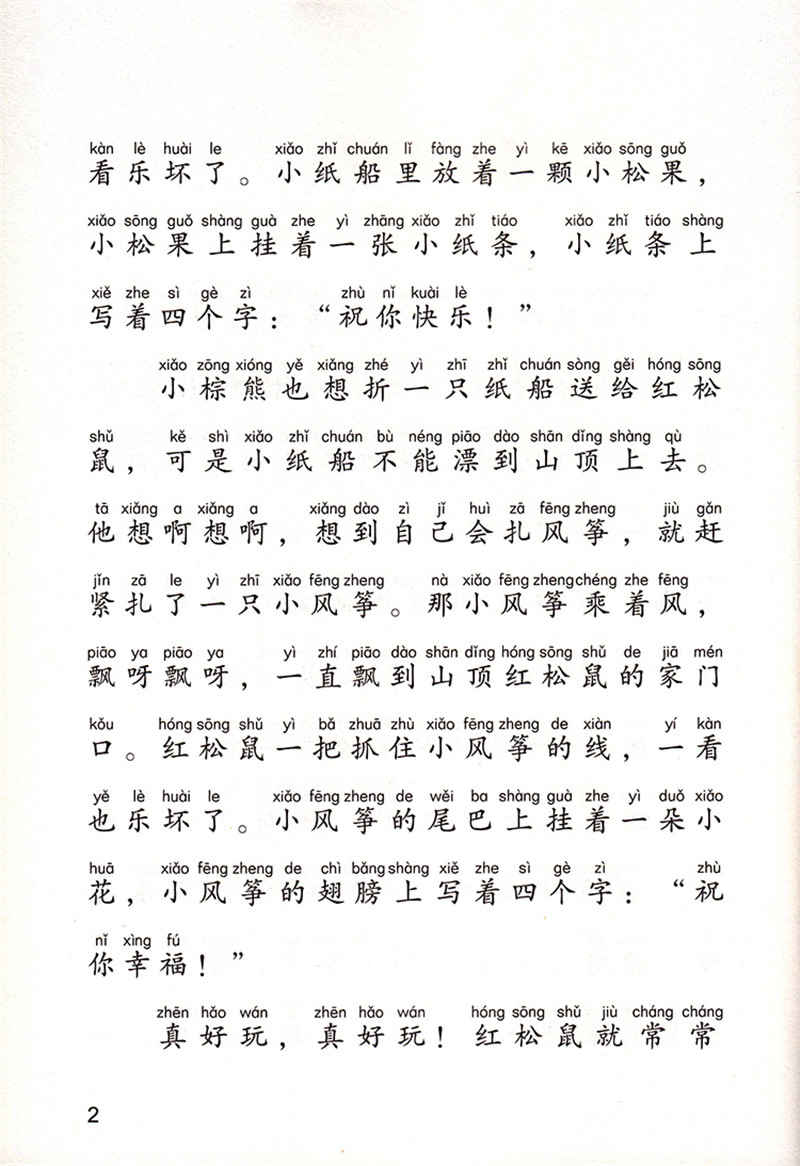 kàn lè huài le xiǎo zhǐ chuán lǐ fàng zhe yì kē xiǎo sōng guǒ
看乐坏了。小纸船里放着一颗小松果，
xiǎo sōng guǒ shàng guà zhe yì zhāng xiǎo zhǐ tiáo xiǎo zhǐ tiáo shàng
小松果上挂着一张小纸条，小纸条上
xiě zhe sì gè zì zhù nǐ kuài lè
写着四个字：“祝你快乐！”
xiǎo zōng xióng yě xiǎng zhé yì zhī zhǐ chuán sòng gěi hóng sōng
小棕熊也想折一只纸船送给红松
shǔ kě shì xiǎo zhǐ chuán bù néng piāo dào shān dǐng shàng qù
鼠，可是小纸船不能漂到山顶上去。
tā xiǎng a xiǎng a xiǎng dào zì jǐ huì zā fēng zheng jiù gǎn
他想啊想啊，想到自己会扎风筝，就赶
jǐn zā le yì zhī xiǎo fēng zheng nà xiǎo fēng zheng chéng zhe fēng
紧扎了一只小风筝。那小风筝乘着风，
piāo ya piāo ya yì zhí piāo dào shān dǐng hóng sōng shǔ de jiā mén
飘呀飘呀，一直飘到山顶红松鼠的家门
kǒu hóng sōng shǔ yì bǎ zhuā zhù xiǎo fēng zheng de xiàn yí kàn
口。红松鼠一把抓住小风筝的线，一看
yě lè huài le xiǎo fēng zheng de wěi ba shàng guà zhe yì duǒ xiǎo
也乐坏了。小风筝的尾巴上挂着一朵小
huā xiǎo fēng zheng de chì bǎng shàng xiě zhe sì gè zì zhù
花，小风筝的翅膀上写着四个字：“祝
nǐ xìng fú
你幸福！”
zhēn hǎo wán zhēn hǎo wán hóng sōng shǔ jiù cháng cháng
真好玩，真好玩！红松鼠就常常
2